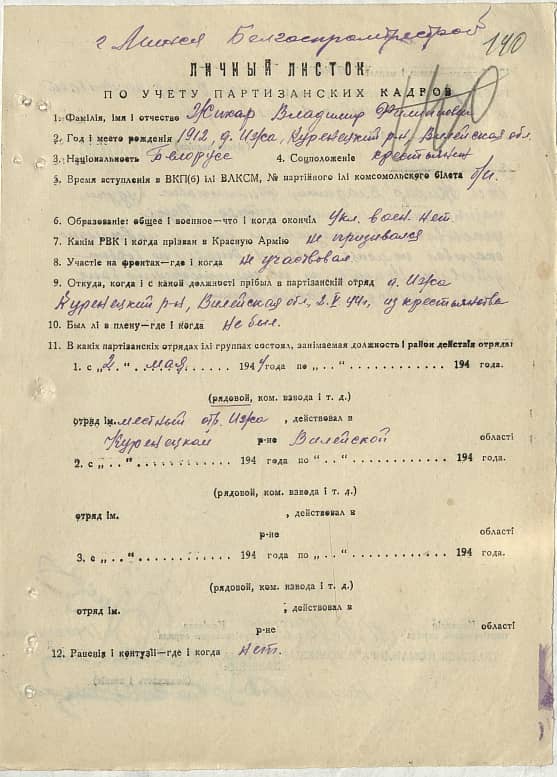 г Минск Белгоспромтрестрой
140
140
ЛИЧНЫЙ ЛИСТОК
ПО УЧЕТУ ПАРТИЗАНСКИХ КАДРОВ
1. Фамілія, імя і отчество Жихар Владимир Филиппович
2. Год і место рождения 1912, д. Ижа, Куренецкий р-н, Вилейская обл.
3. Національность Белорусс 4. Соцположение крестьянин
5. Время вступления в ВКП(б) ілі ВЛКСМ, № партійного ілі комсомольского білета б/п.
6. Образованіе: общее і военное—что і когда окончіл 4 кл. воен. нет.
7. Какім РВК і когда прізван в Красную Армію не призывался
8. Участіе на фронтах—где і когда не участвовал
9. Откуда, когда і с какой должності прібыл в партізанскій отряд д. Ижа
Куренецкий р-н, Вилейская обл., 2.V 44г., из крестьянства
10. Был лі в плену—где і когда не был.
11. В какіх партізанскіх отрядах ілі группах состоял, занимаемая должность і район действія отряда:
1. с „2.“ мая 1944 года по „..“ 194 года.
(рядовой, ком. взвода і т. д.)
отряд ім. местный отр. Ижа, действовал в
Куренецком р-не Вилейской області
2. с „..“ 194 года по “..“ 194 года.
(рядовой, ком. взвода і т. д.)
отряд ім. , действовал в
р-не області
3. с „..“ 194 года по „..“ 194 года.
(рядовой, ком. взвода і т. д.)
отряд ім. , действовал в
р-не області
12. Раненія і контузіі—где і когда нет.